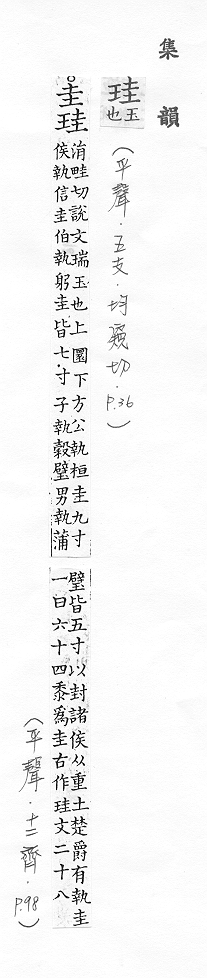 集韻
珪
玉
也
(平聲.五支.均窺切.P.36)
圭珪
涓畦切說文瑞玉也上圜下方公執桓圭九寸
侯執信圭伯執躬圭皆七寸子執穀璧男執蒲
璧皆五寸以封諸侯从重土楚爵有執圭
一曰六十四黍爲圭古作珪文二十八
(平聲.十二齊.P.98)